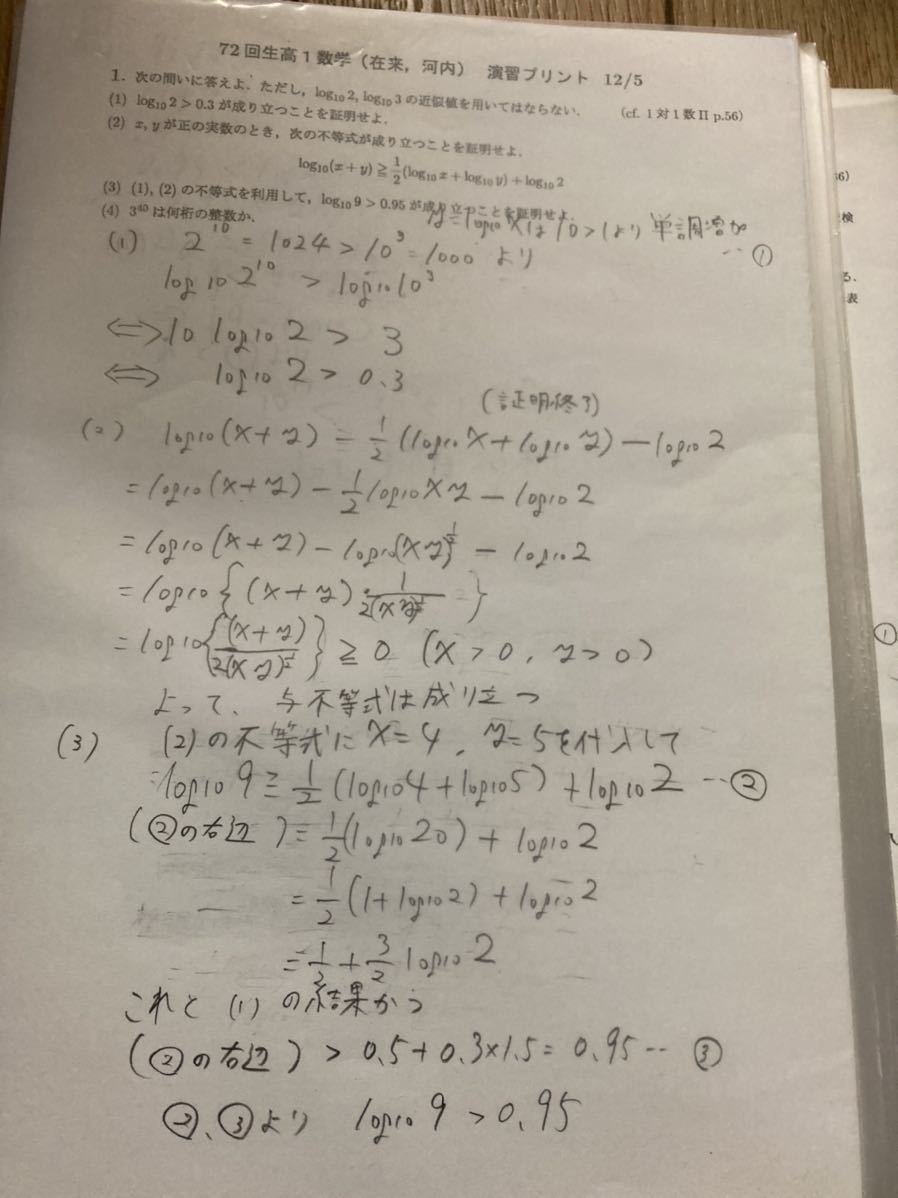 72回生高1数学（在来，河内） 演習プリント 12/5
1. 次の問いに答えよ．ただし，log₁₀2, log₁₀3 の近似値を用いてはならない． (cf. 1対1数II p.56)
(1) log₁₀2 > 0.3 が成り立つことを証明せよ．
(2) x, y が正の実数のとき，次の不等式が成り立つことを証明せよ．
log₁₀(x+y) ≧ 1/2(log₁₀x + log₁₀y) + log₁₀2
(3) (1), (2) の不等式を利用して，log₁₀9 > 0.95 が成り立つことを証明せよ．
(4) 3⁴⁰ は何桁の整数か．
y=log₁₀xは10>1より 単調増加
‥①
(1) 2¹⁰ = 1024 > 10³ = 1000 より
log₁₀2¹⁰ > log₁₀10³
⇔ 10 log₁₀2 > 3
⇔ log₁₀2 > 0.3
(証明終了)
(2) log₁₀(x+y) − 1/2(log₁₀x + log₁₀y) − log₁₀2
= log₁₀(x+y) − 1/2 log₁₀xy − log₁₀2
= log₁₀(x+y) − log₁₀(xy)^(1/2) − log₁₀2
= log₁₀{(x+y)・1/(2(xy)^(1/2))}
= log₁₀{(x+y)/(2(xy)^(1/2))} ≧ 0 (x>0, y>0)
よって、与不等式は成り立つ
(3) (2)の不等式にx=4, y=5を代入して
log₁₀9 ≧ 1/2(log₁₀4 + log₁₀5) + log₁₀2 ‥②
(②の右辺) = 1/2(log₁₀20) + log₁₀2
= 1/2(1+log₁₀2) + log₁₀2
= 1/2 + 3/2 log₁₀2
これと (1) の結果から
(②の右辺) > 0.5+0.3×1.5 = 0.95 ‥ ③
②、③より log₁₀9 > 0.95